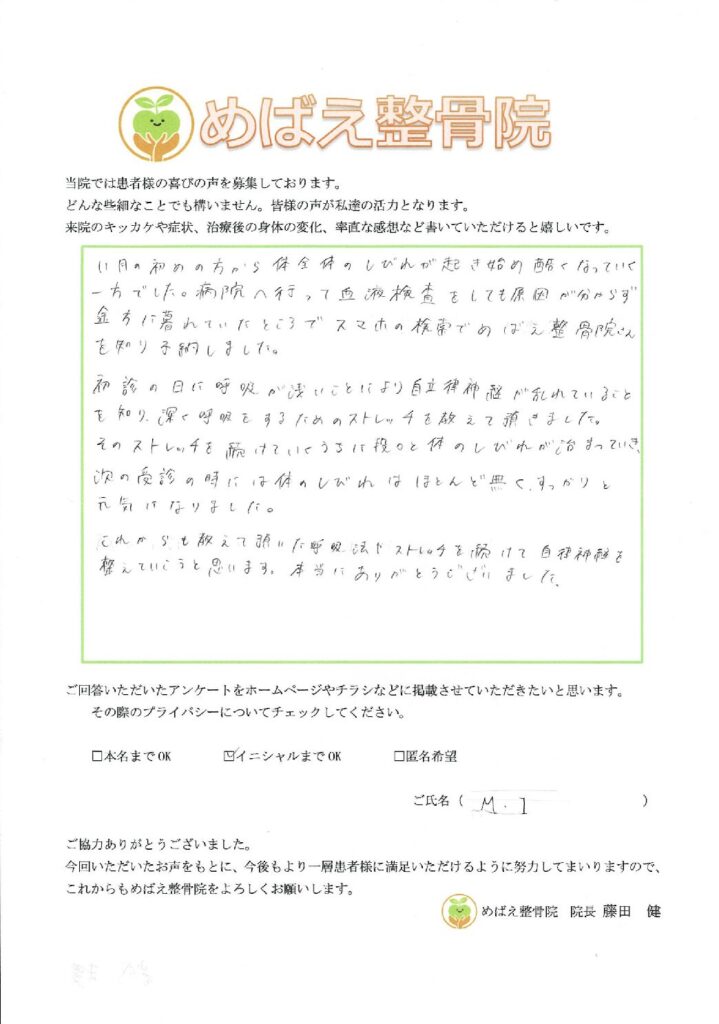 めばえ整骨院
当院では患者様の喜びの声を募集しております。
どんな些細なことでも構いません。皆様の声が私達の活力となります。
来院のキッカケや症状、治療後の身体の変化、率直な感想など書いていただけると嬉しいです。
11月の初めの方から体全体のしびれが起き始め酷くなっていく
一方でした。病院へ行って血液検査をしても原因が分からず
途方に暮れていたところでスマホの検索でめばえ整骨院さん
を知り予約しました。
初診の日に呼吸が浅いことにより自立律神経が乱れていること
を知り、深く呼吸をするためのストレッチを教えて頂きました。
そのストレッチを続けていくうちに段々と体のしびれが治まっていき、
次の受診の時には体のしびれはほとんど無く、すっかりと
元気になりました。
これからも教えて頂いた呼吸法やストレッチを続けて自律神経を
整えていこうと思います。本当にありがとうございました。
ご回答いただいたアンケートをホームページやチラシなどに掲載させていただきたいと思います。
その際のプライバシーについてチェックしてください。
□本名までOK ☑イニシャルまでOK □匿名希望
ご氏名（ M.I ）
ご協力ありがとうございました。
今回いただいたお声をもとに、今後もより一層患者様に満足いただけるように努力してまいりますので、
これからもめばえ整骨院をよろしくお願いします。
めばえ整骨院 院長 藤田 健